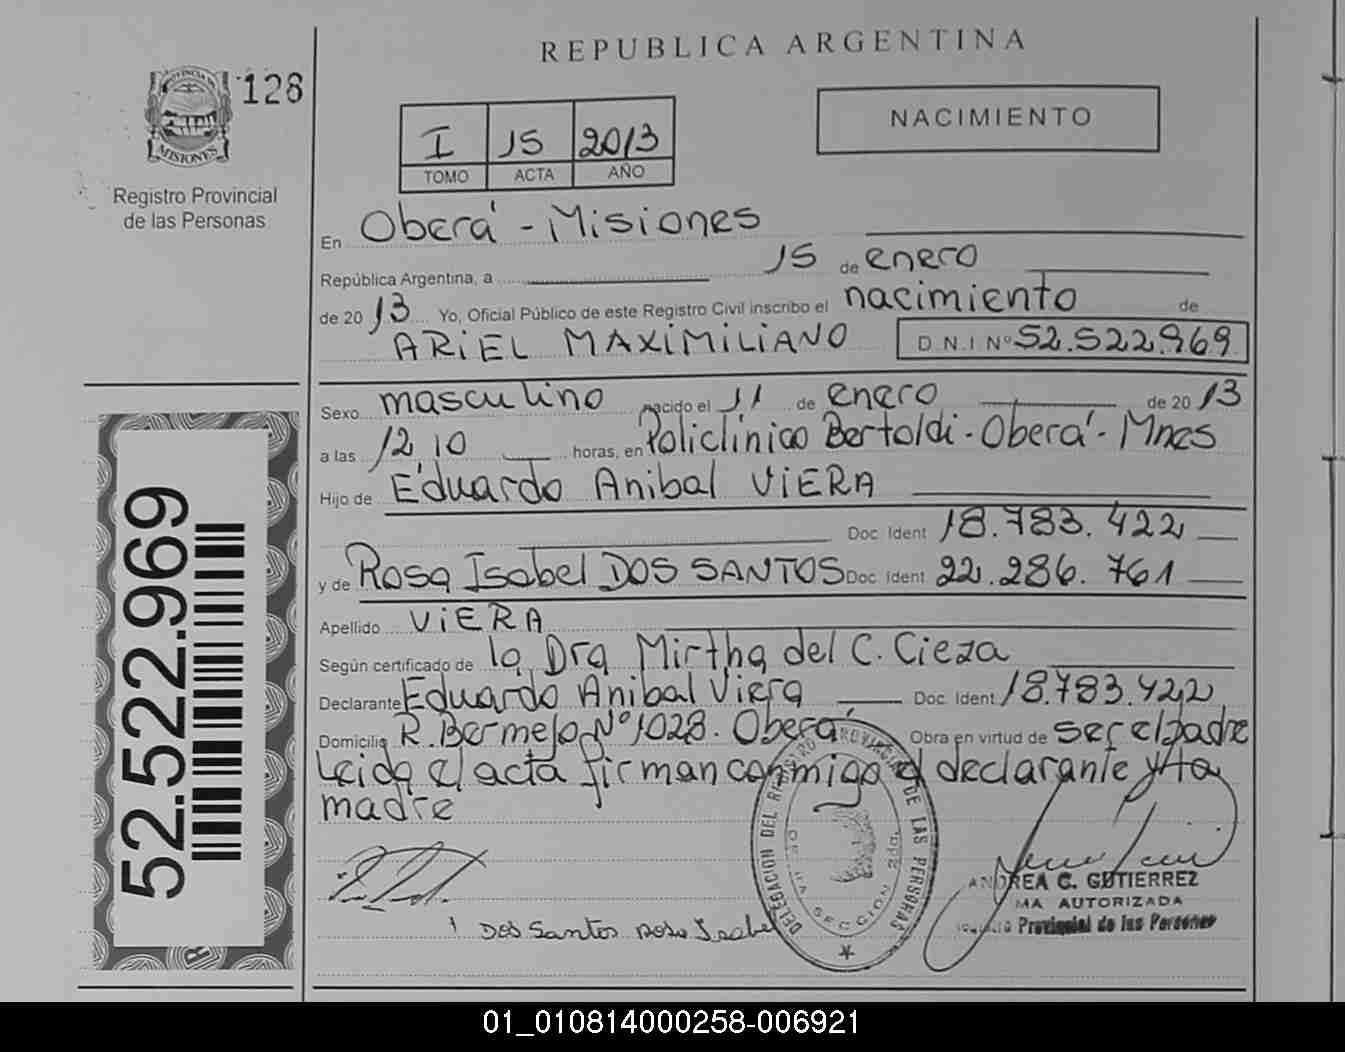 REPUBLICA ARGENTINA
PROVINCIA DE
MISIONES
128
Registro Provincial
de las Personas
I 15 2013
TOMO ACTA AÑO
NACIMIENTO
En Oberá - Misiones
República Argentina, a 15 de enero
de 2013 Yo, Oficial Público de este Registro Civil inscribo el nacimiento de
ARIEL MAXIMILIANO D.N.I Nº 52.522.969
Sexo masculino nacido el 11 de enero de 2013
a las 12 10 horas, en Policlínico Bertoldi - Oberá - Mnes
Hijo de Eduardo Anibal VIERA
Doc. Ident 18.783.422
y de Rosa Isabel DOS SANTOS Doc. Ident 22.286.761
Apellido VIERA
Según certificado de la Dra Mirtha del C. Cieza
Declarante Eduardo Anibal Viera Doc. Ident. 18.783.422
Domicilio R. Bermejo Nº 1028. Oberá Obra en virtud de ser el padre
Leida el acta firman conmigo el declarante y la
madre
52.522.969
DELEGACION DEL REGISTRO PROVINCIAL DE LAS PERSONAS
OBERA SECCION 2da.
Dos Santos Rosa Isabel
ANDREA C. GUTIERREZ
FIRMA AUTORIZADA
Registro Provincial de las Personas
01_010814000258-006921